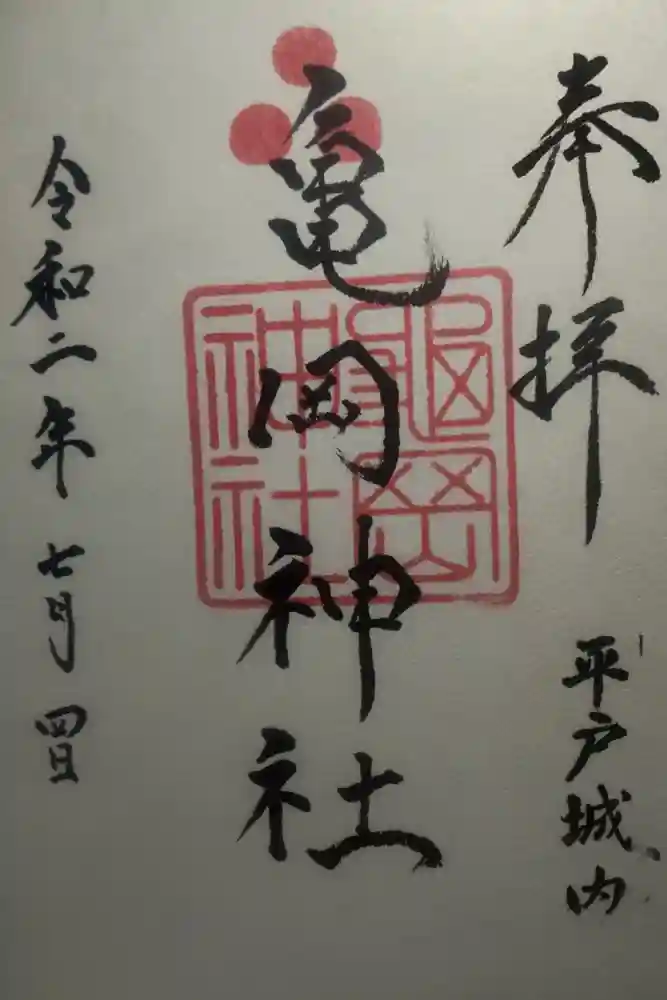 奉拝
平戸城内
亀岡神社
龜岡
神社
令和二年七月四日